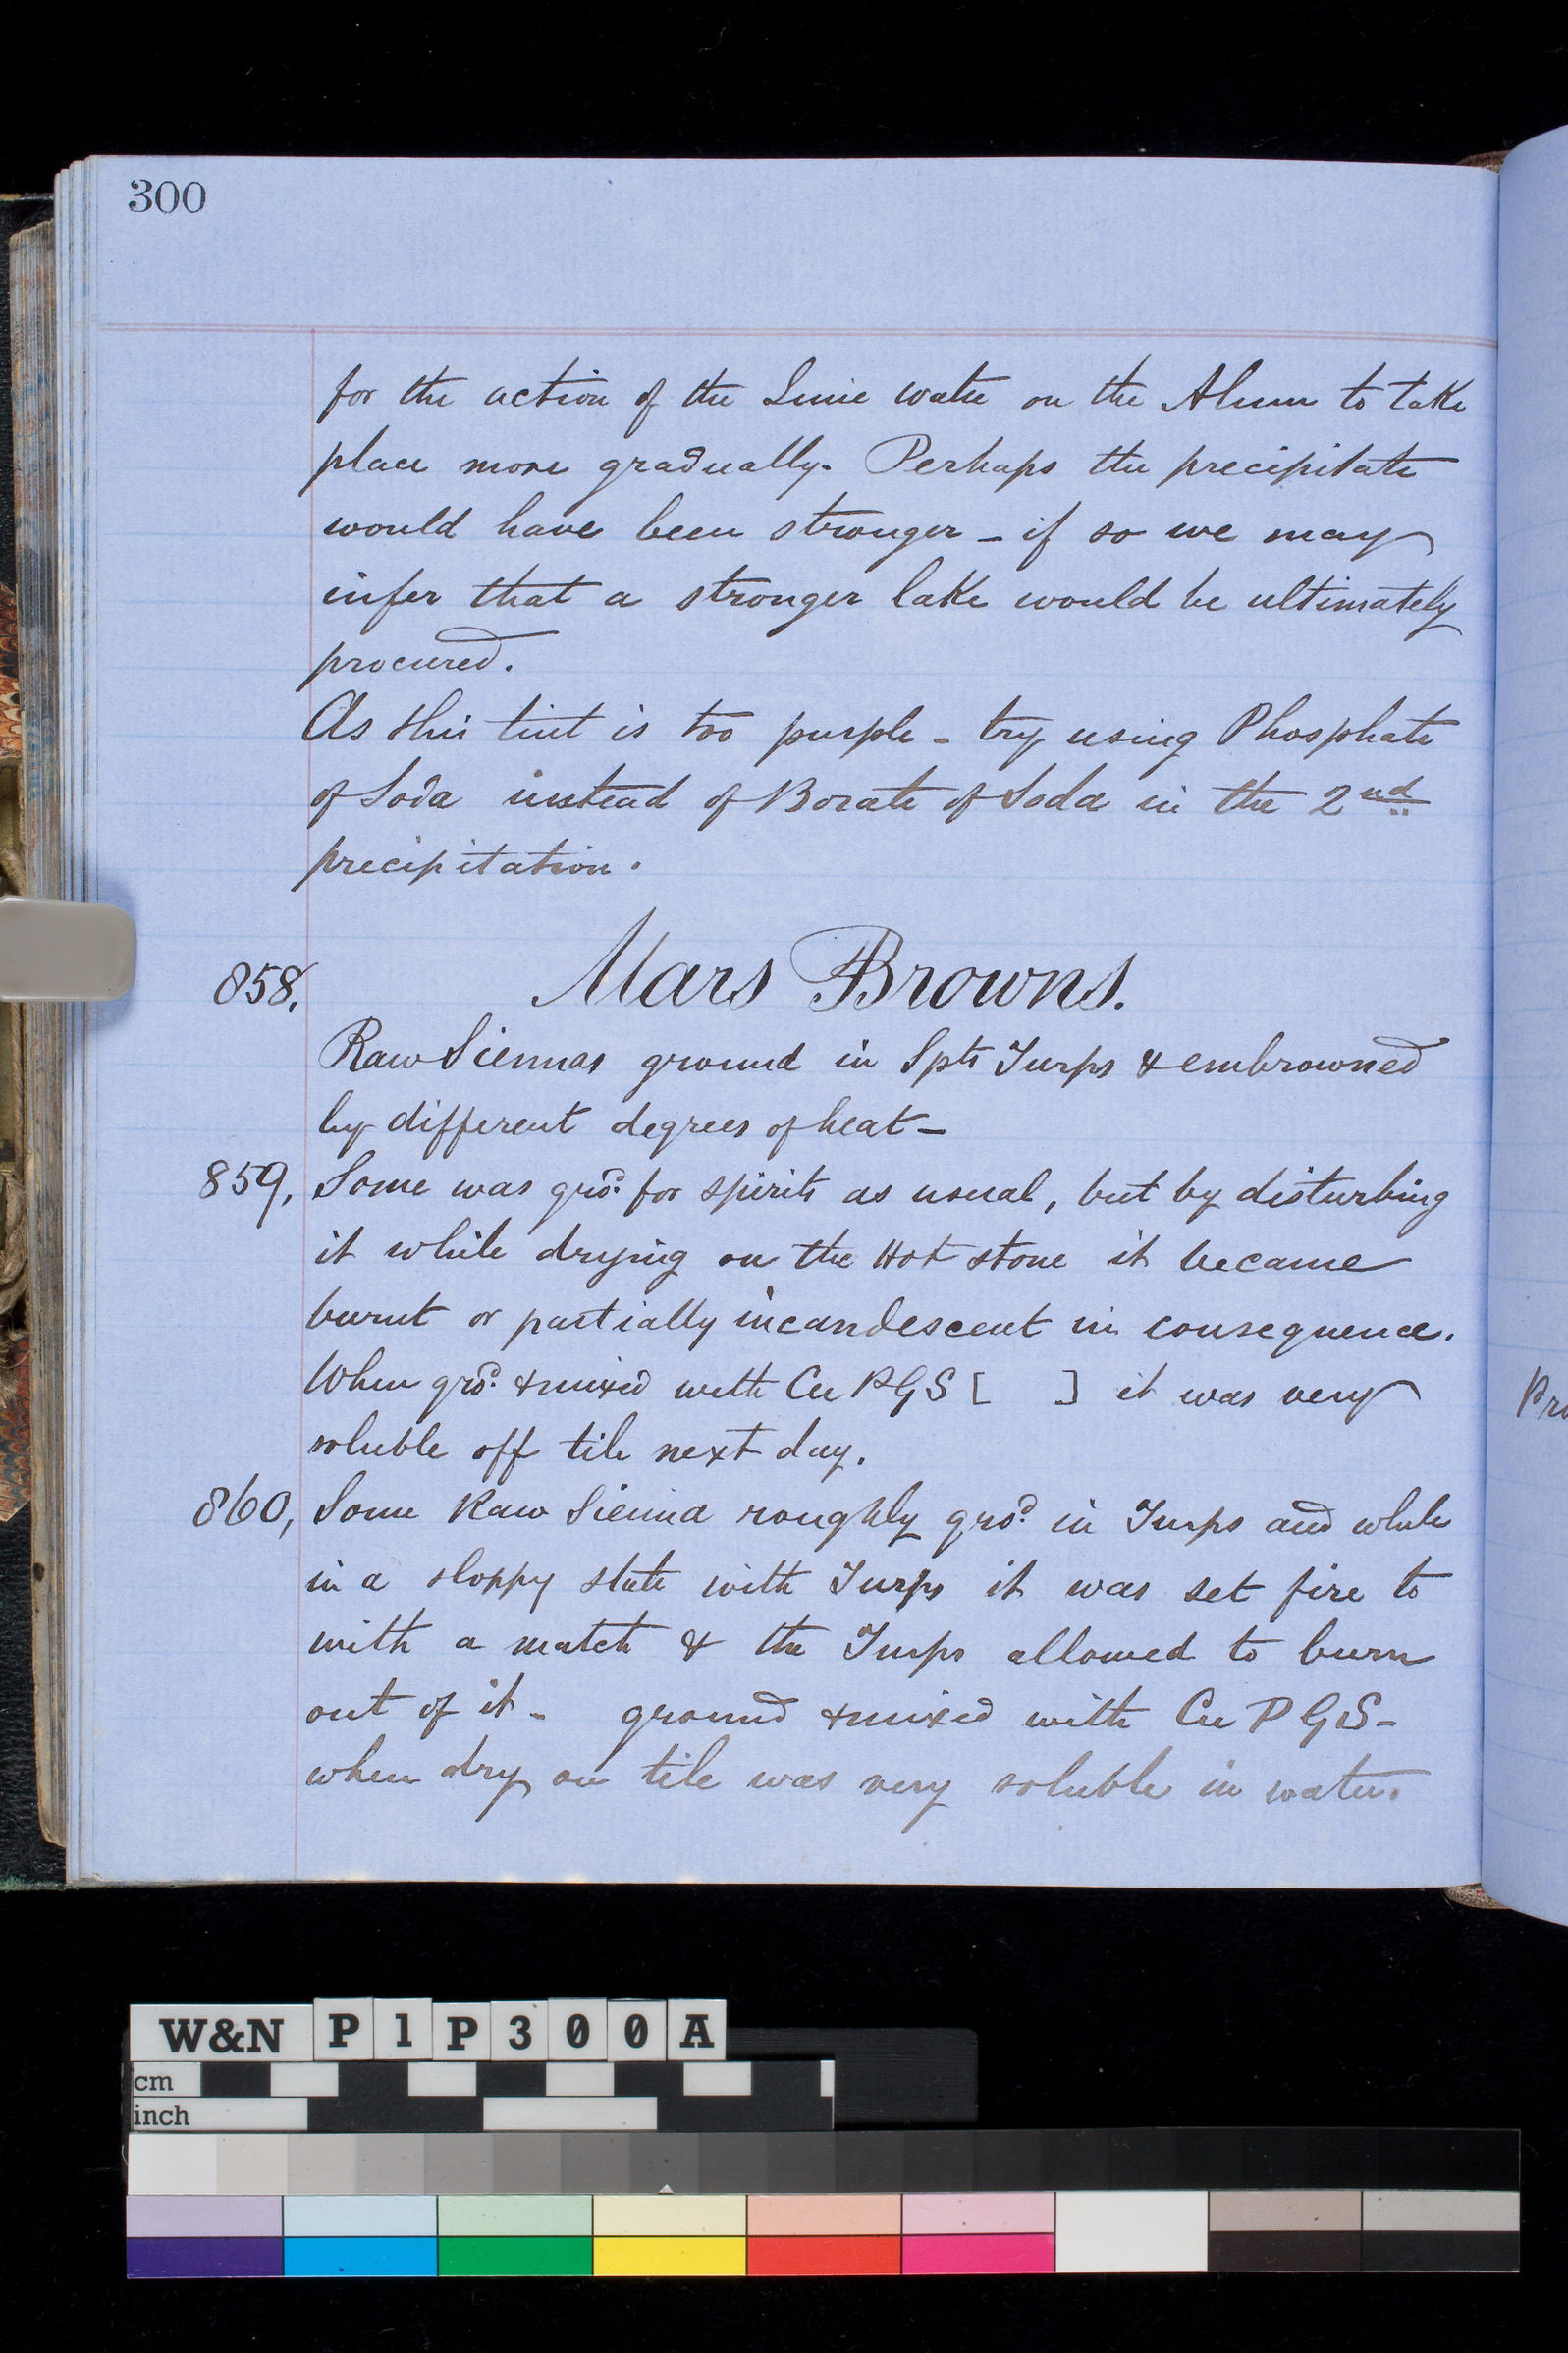 300
for the action of the Lime water on the Alum to take
place more gradually. Perhaps the precipitate
would have been stronger - if so we may
infer that a stronger lake would be ultimately
procured.
As this tint is too purple - try using Phosphate
of Soda instead of Borate of Soda in the 2nd
precipitation.
858, Mars Browns.
Raw Siennas ground in Spts Turps & embrowned
by different degrees of heat -
859, Some was grd. for spirits as usual, but by disturbing
it while drying on the Hot stone it became
burnt or partially incandescent in consequence.
When grd. & mixed with Cu P G S [ ] it was very
soluble off tile next day.
860, Some Raw Sienna roughly grd. in Turps and while
in a sloppy state with Turps it was set fire to
with a match & the Turps allowed to burn
out of it - ground & mixed with Cu P G S -
when dry on tile was very soluble in water.
W&N P1P300A
cm
inch